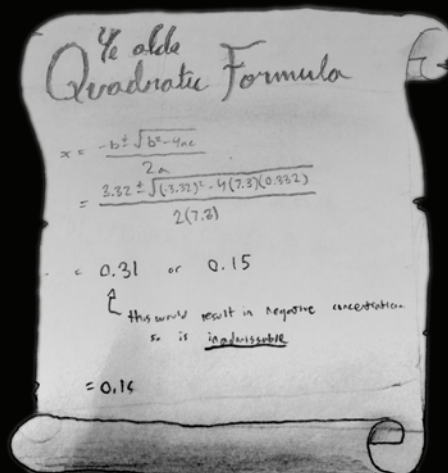 Ye olde
Quadratic Formula
x = -b ± √b² - 4ac
2a
= 3.32 ± √(-3.32)² - 4(7.3)(0.332)
2(7.3)
= 0.31 or 0.15
this would result in negative concentration
so is inadmissable